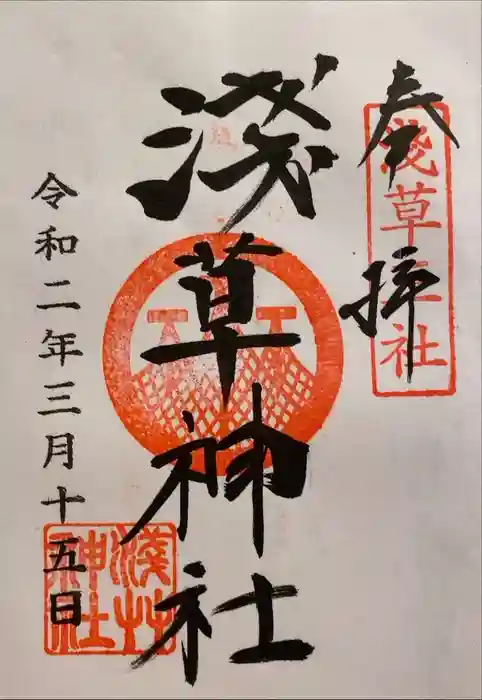 奉拝
淺草神社
淺草神社
令和二年三月十五日
淺草神社